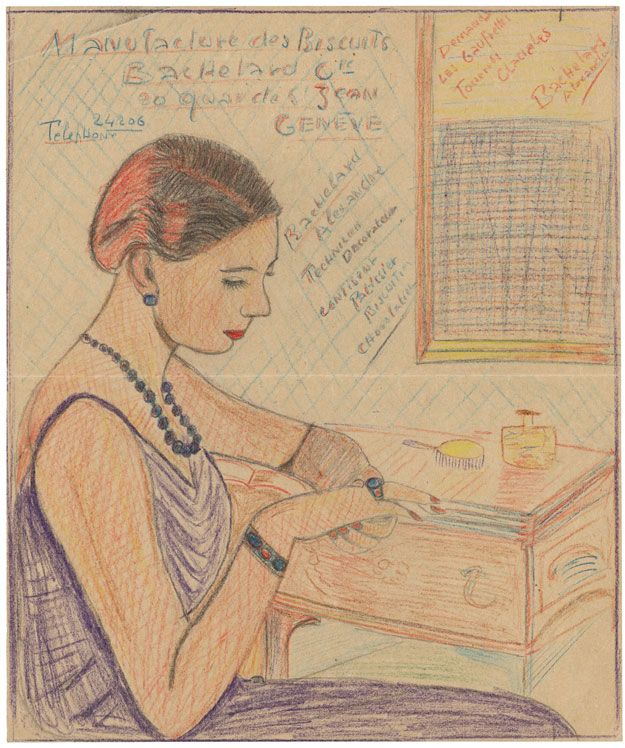 Manufacture des Biscuits
Bachelard Cie
20 Quai de St JEAN
GENÈVE
24206
Telephone
Bachelard
Alexandre
Technicien
Decorateur
confiseur
Patissier
Biscuitier
Chocolatier
Demandez
Les Gaufrettes
Bachelard
Alexandre